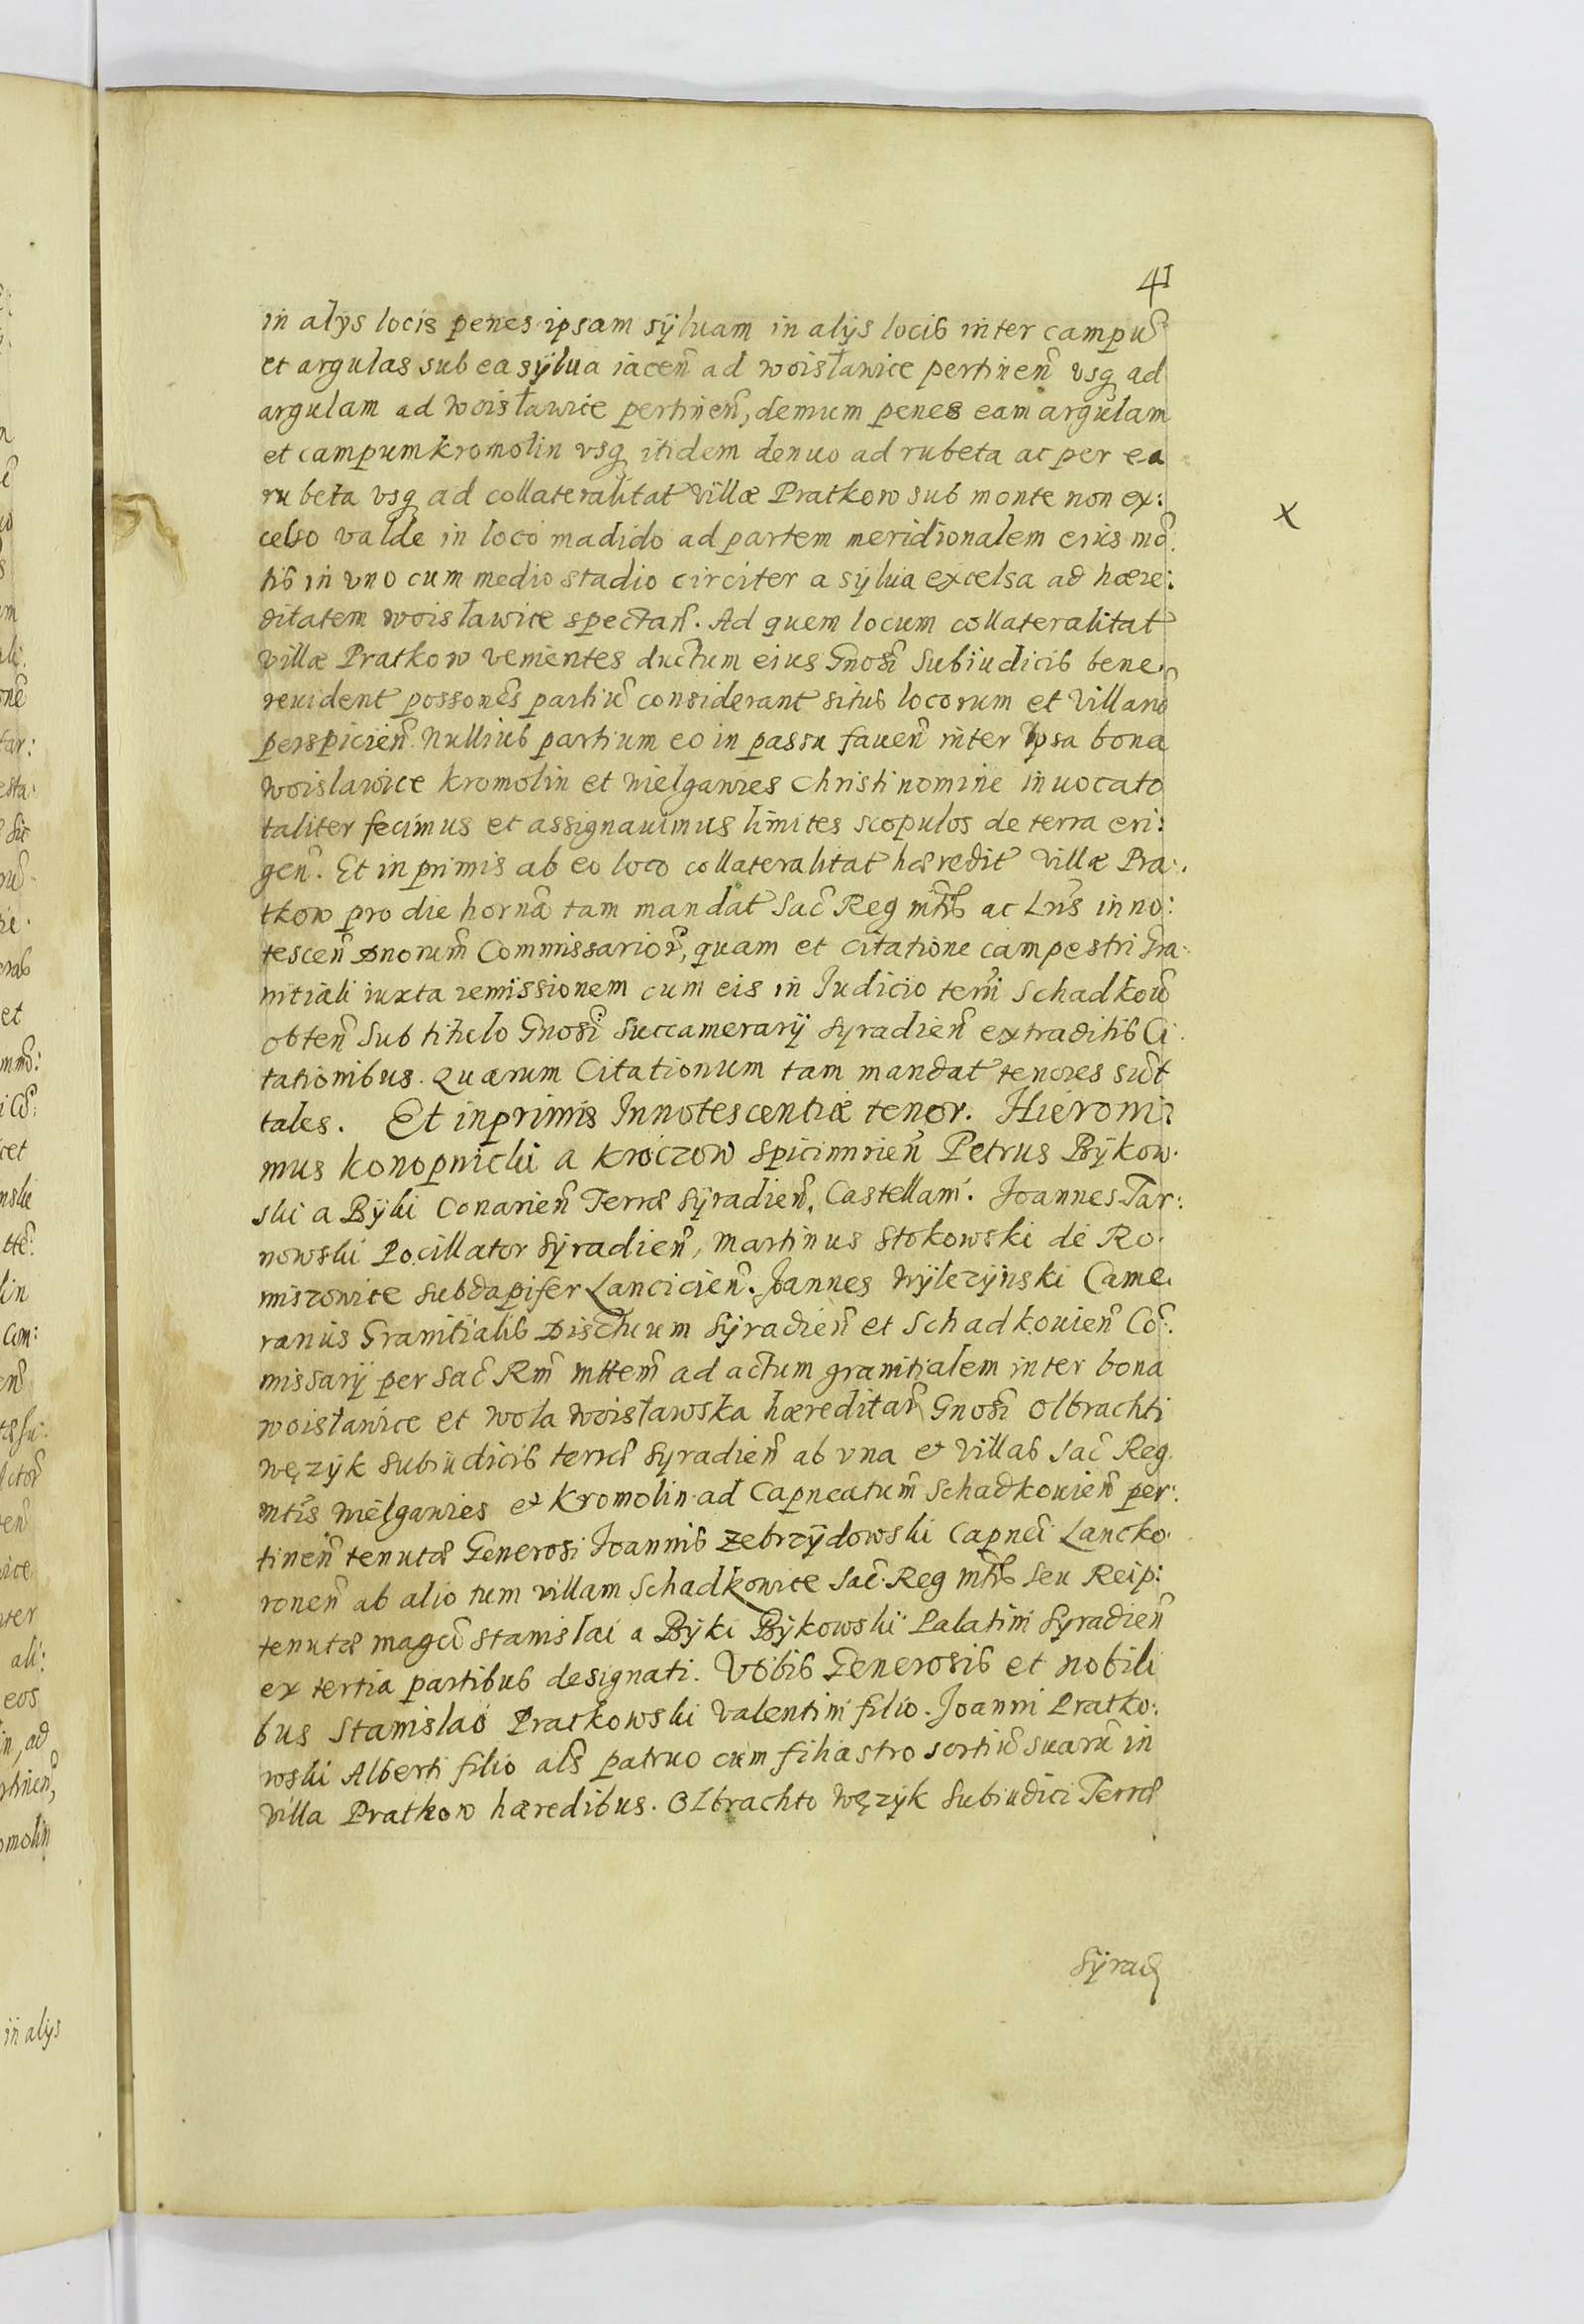 41
in alÿs locis penes ipsam sÿluam in alijs locis inter campũ
et argulas sub ea sÿlua iaceñ ad woisławice pertineñ vsq ad
argulam ad woisławice pertineñ, demum penes eam argulam
et campum kromolin vsq itidem denuo ad rubeta ac per ea
rubeta vsq ad collateralitat villæ Pratkow sub monte non ex:
celso valde in loco madido ad partem meridionalem eius mõ
tis in vno cum medio stadio circiter a sÿlua excelsa ad hære:
ditatem woisławice spectañ. Ad quem locum collateralitat
villæ Pratkow venientes ductum eius Gnosi Subiudicis bene
reuident possones partiũ considerant situs locorum et villarũ
perspicieñ Nullius partium eo in passu faueñ inter ipsa bona
woislawice kromolin et wielgawies Christi nomine inuocato
taliter fecimus et assignauimus limites scopulos de terra eri:
geñ. Et in primis ab eo loco collateralitat hæredit villæ Pra:
tkow pro die hornã tam mandat Sac Reg mttis ac Lris inno:
tesceñ Dnorum Commissarior, quam et citatione campestri Gra
nitiali iuxta remissionem cum eis in Judicio terri Schadkoũ
obteñ sub titulo Gnosi Succamerarÿ Syradieñ extraditis Ci
tationibus. Quarum Citationum tam mandat tenores sũt
tales. Et inprimis Innotescentiæ tenor. Hieroni:
mus konopnicki a kroczow Spicimirieñ Petrus Bÿkow
ski a Bÿki Conarieñ Terræ Sÿradieñ. Castellani. Joannes Tar:
nowski Pocillator Sÿradieñ, Martinus Stokowski de Ro
miszowice Subdapifer Lancicieñ. Joannes Wÿlczÿnski Came
rarius Granitialis Districtuum Sÿradieñ et Schadkouieñ Cõ
missarij per Sac Rm mttem ad actum granitialem inter bona
woisławice et wola woisławska hæreditar Gnosi Olbrachti
węzÿk Subiudicis terræ Syradieñ ab vna et villas Sac Reg
mtis wielgawies et Kromolin ad Capneatum Schadkouieñ per:
tineñ tenutæ Generosi Joannis Zebrzÿdowski Capnei Lancko
roneñ ab alio tum villam Schadkowice Sac Reg mttis seu Reip:
tenutæ magci Stanislai a Bÿki Bÿkowski Palatini Syradieñ
ex tertia partibus designati. Vobis Generosis et nobili
bus Stanislao Pratkowski Valentini filio. Joanni Pratko:
wski Alberti filio als patruo cum filiastro sortiũ suarũ in
villa Pratkow hæredibus. Olbrachto węzÿk Subiudici Terræ
Sÿrad
x